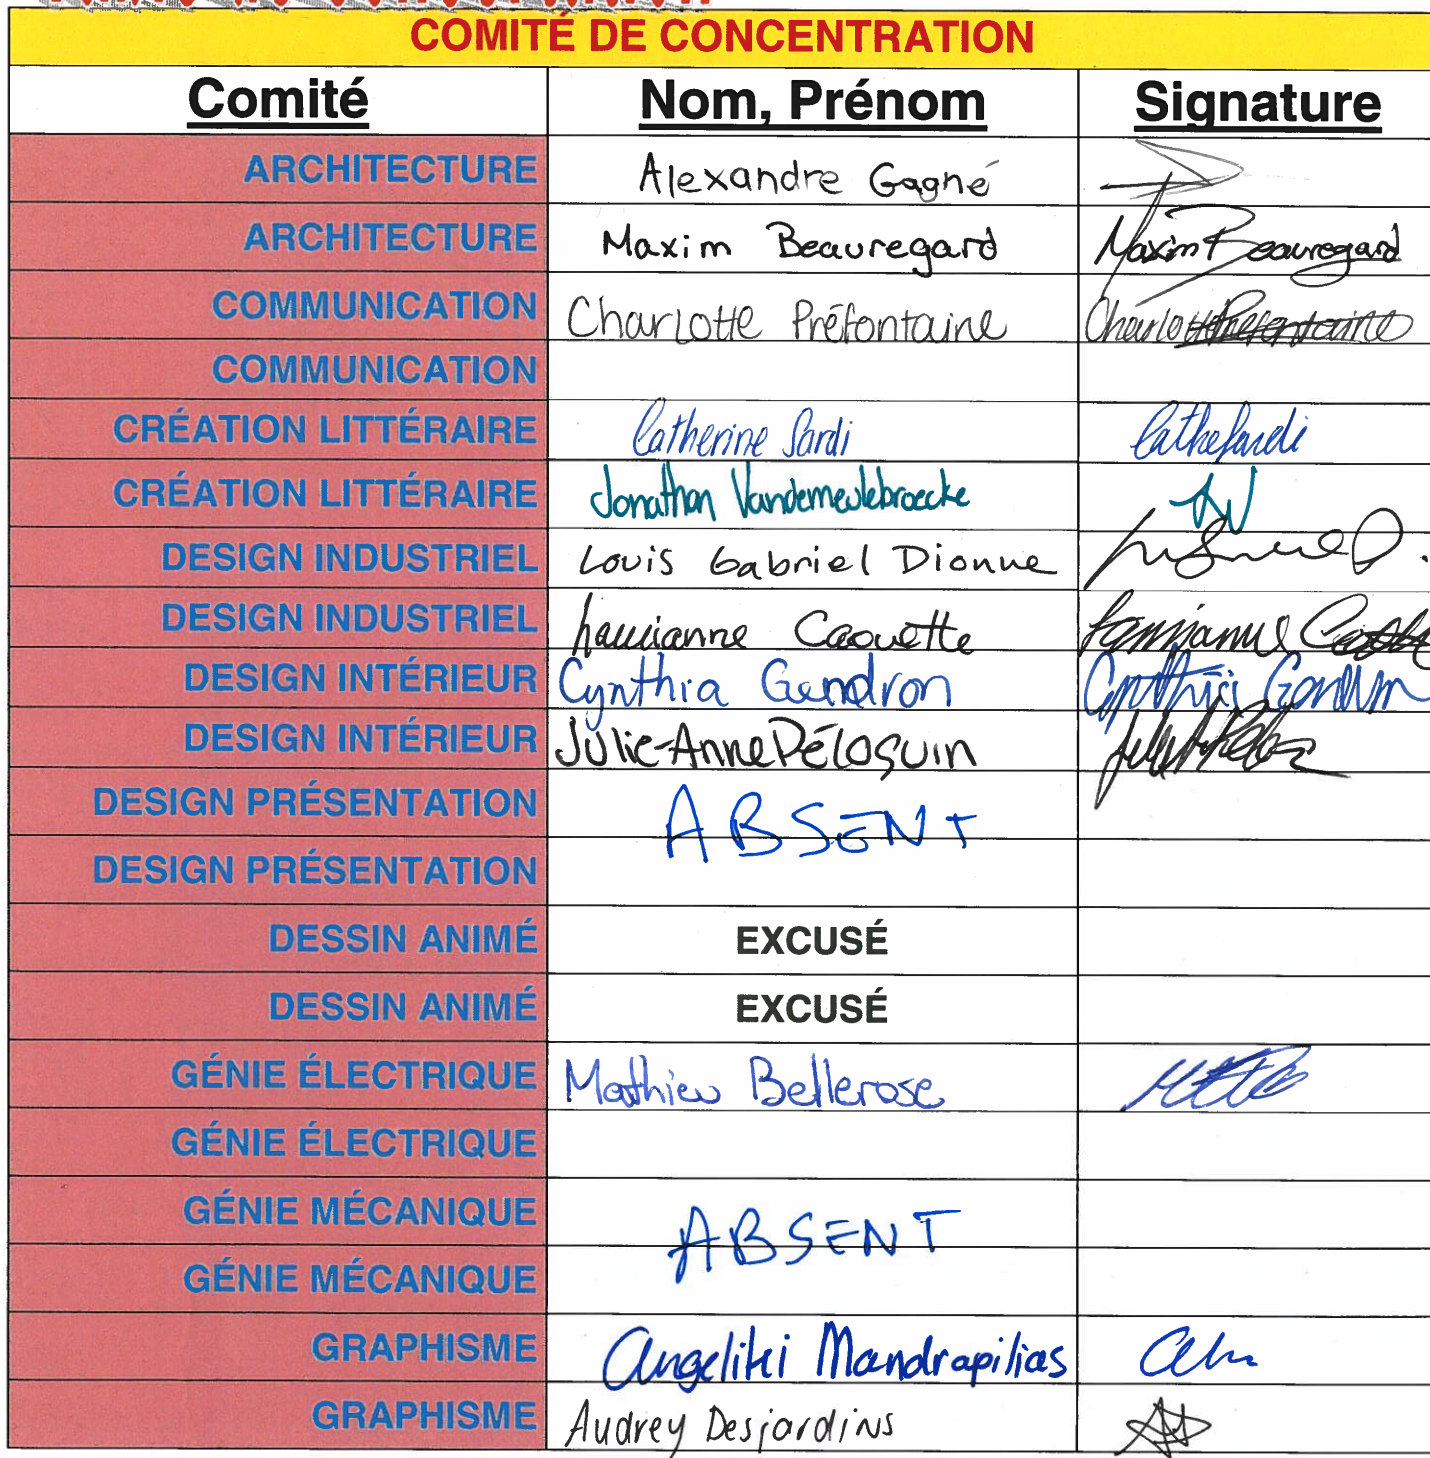 COMITÉ DE CONCENTRATION
Comité Nom, Prénom Signature
ARCHITECTURE Alexandre Gagné
ARCHITECTURE Maxim Beauregard Maxim Beauregard
COMMUNICATION Charlotte Préfontaine Charlotte Préfontaine
COMMUNICATION
CRÉATION LITTÉRAIRE Catherine Sardi
CRÉATION LITTÉRAIRE Jonathan Vandemeulebroecke JV
DESIGN INDUSTRIEL Louis Gabriel Dionne
DESIGN INDUSTRIEL Caouette
DESIGN INTÉRIEUR Cynthia Gendron Cynthia Gendron
DESIGN INTÉRIEUR Julie-Anne Péloquin
DESIGN PRÉSENTATION ABSENT
DESIGN PRÉSENTATION
DESSIN ANIMÉ EXCUSÉ
DESSIN ANIMÉ EXCUSÉ
GÉNIE ÉLECTRIQUE Mathieu Bellerose
GÉNIE ÉLECTRIQUE
GÉNIE MÉCANIQUE ABSENT
GÉNIE MÉCANIQUE
GRAPHISME Angeliki Mandrapilias
GRAPHISME Audrey Desjardins